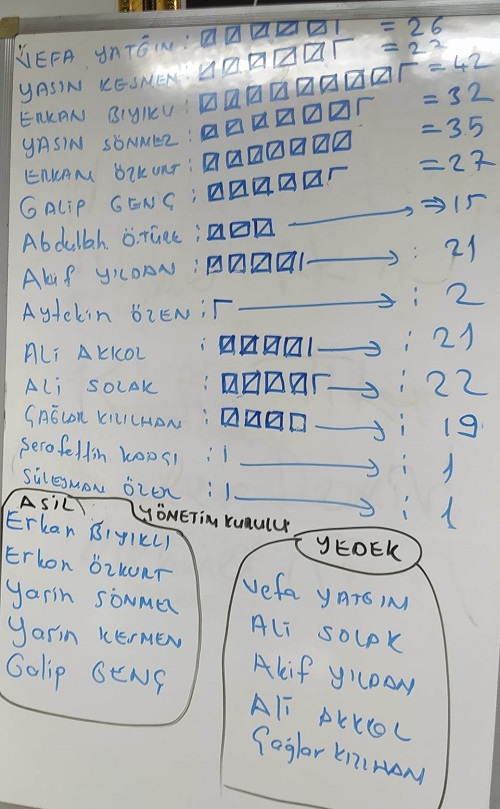 VEFA YATGIN : = 26
YASIN KESMEN : = 27
ERKAN BIYIKLI : = 42
YASIN SÖNMEZ : = 32
ERKAN ÖZKURT : = 35
GALİP GENÇ : = 27
Abdullah ÖZTÜRK : ⇒ 15
Akif YILDAN : → : 21
Aytekin ÖZEN : → : 2
ALİ AKKOL : → : 21
ALİ SOLAK : → : 22
ÇAĞLAR KIZILHAN : → : 19
Şerafettin KAPÇI : → : 1
SÜLEYMAN ÖZER : → : 1
ASİL YÖNETİM KURULU
Erkan BIYIKLI
Erkan ÖZKURT
Yasin SÖNMEZ
Yasin KESMEN
Galip GENÇ
YEDEK
Vefa YATGIN
ALİ SOLAK
Akif YILDAN
ALİ AKKOL
Çağlar KIZILHAN